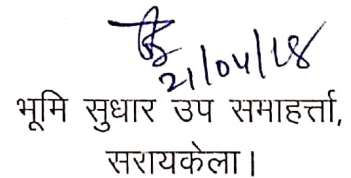 21/04/18
भूमि सुधार उप समाहर्त्ता,
सरायकेला।